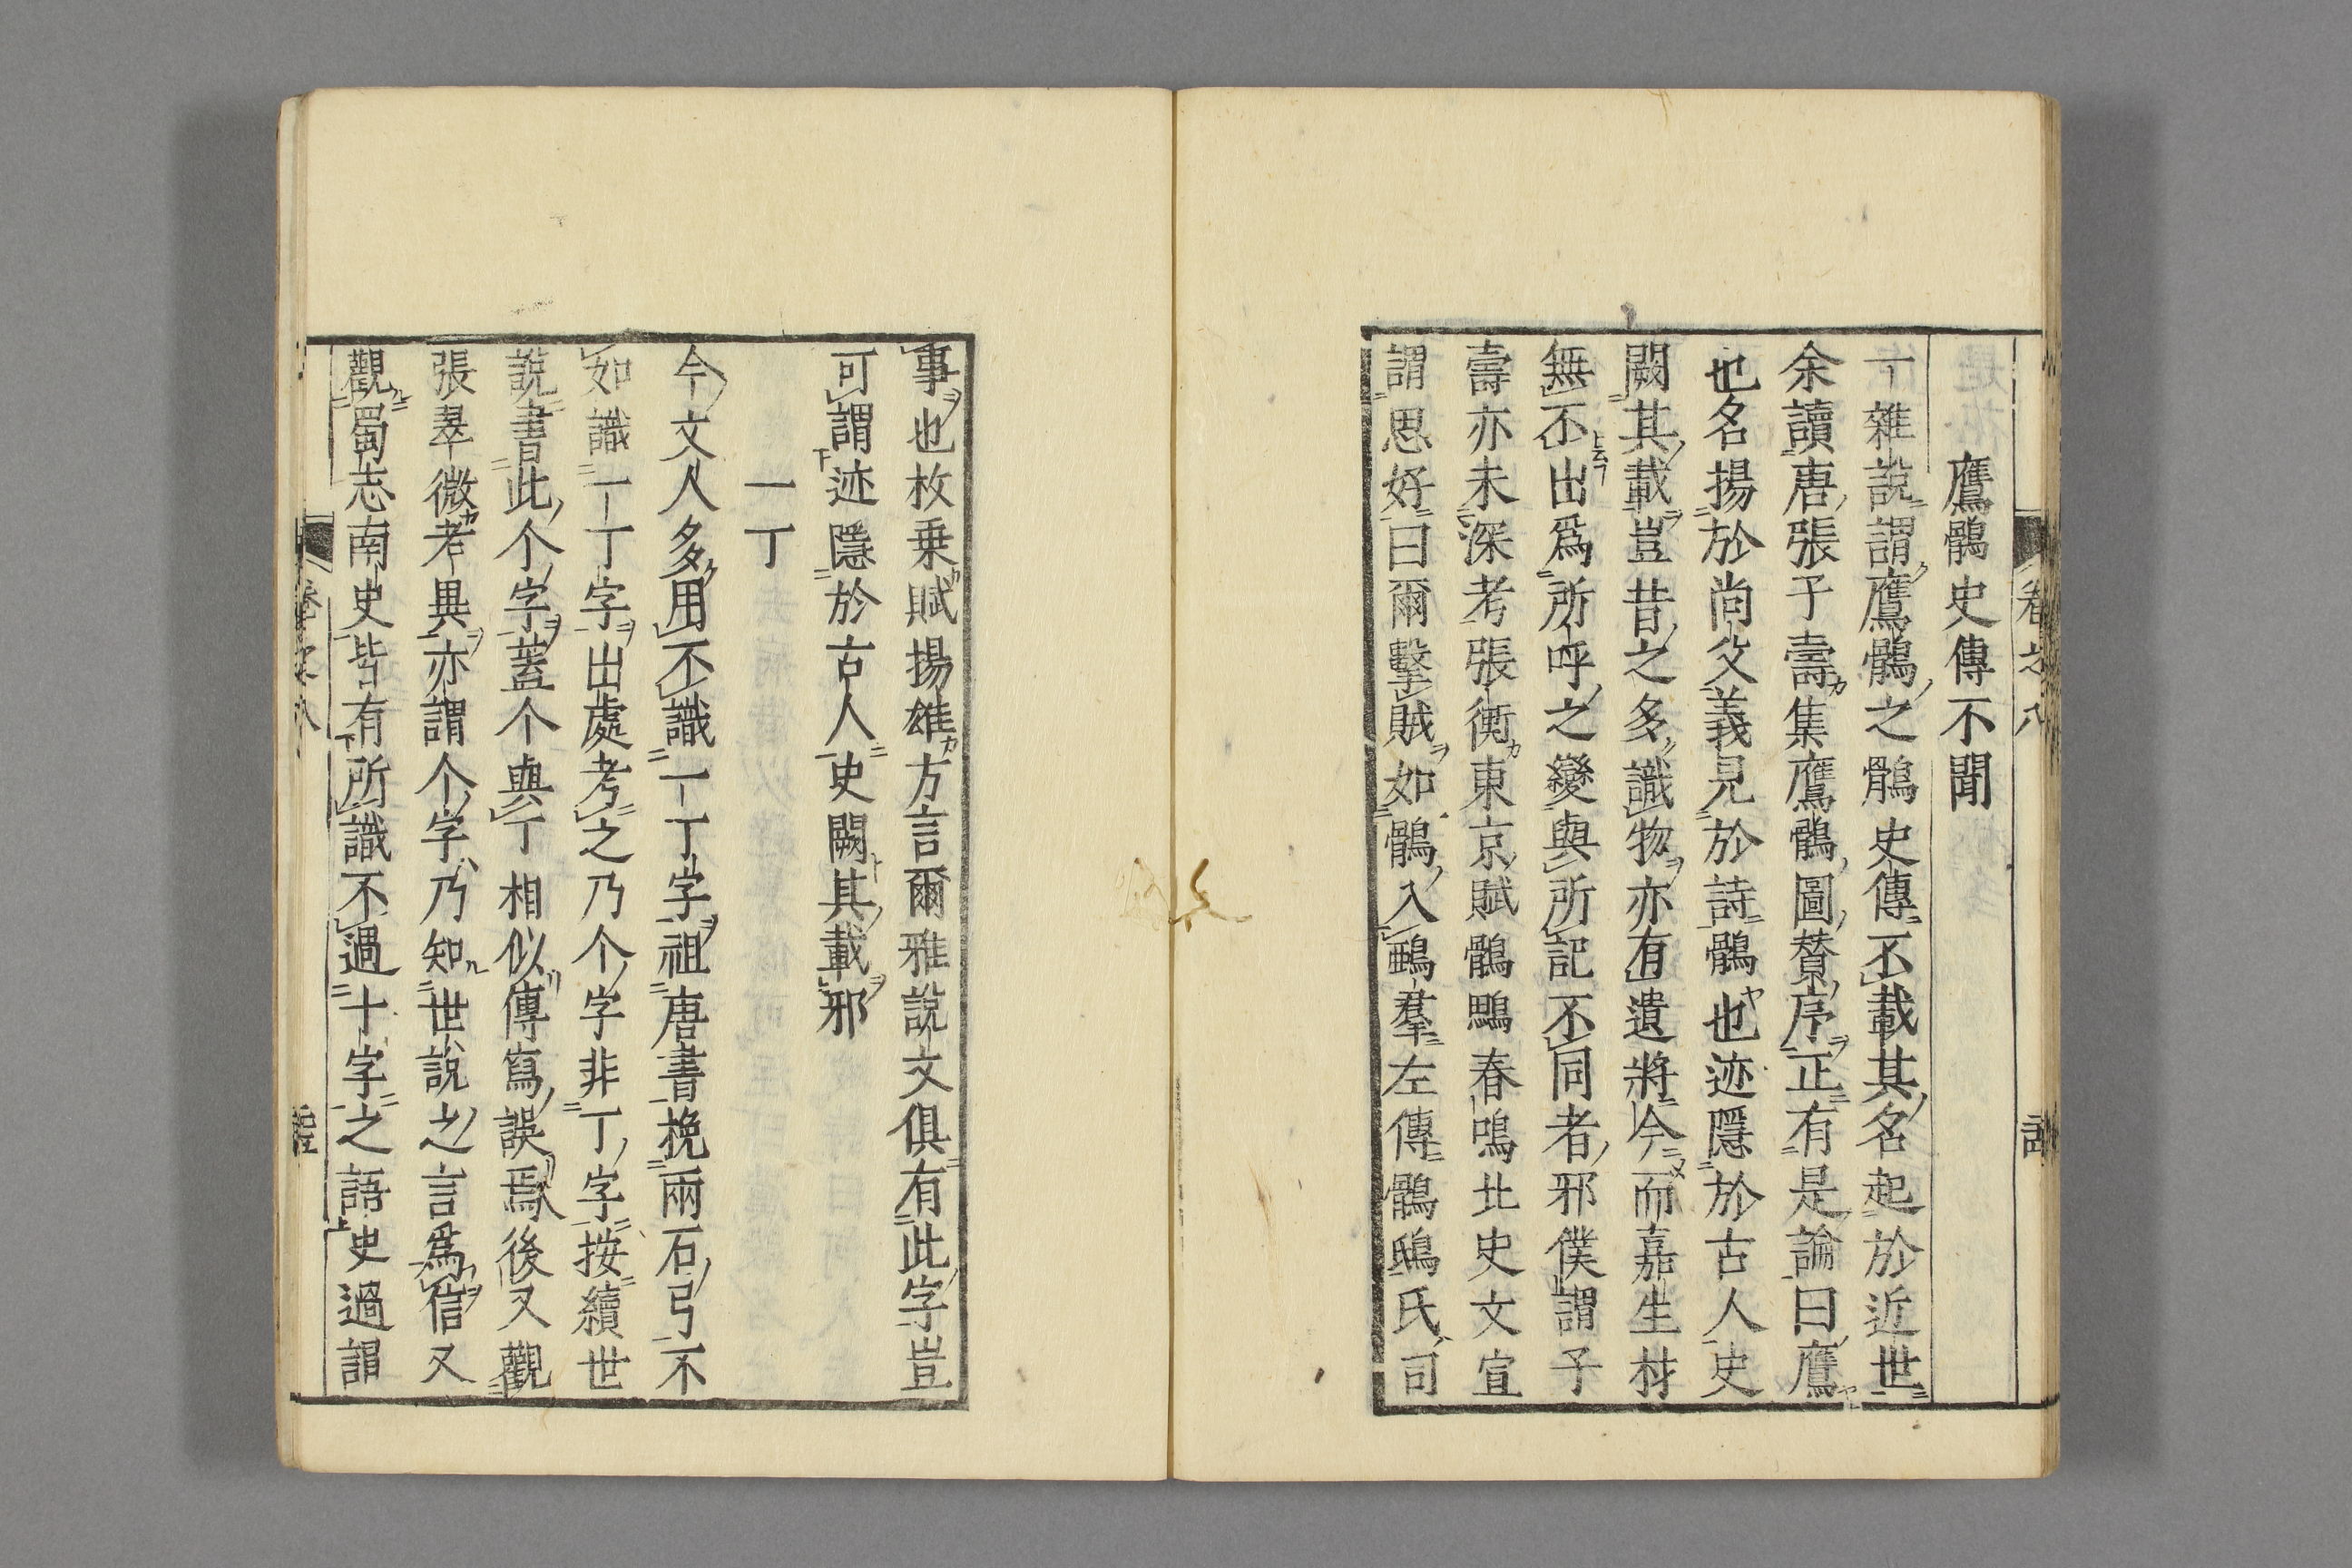 鷹鶻史傳不聞
一雜說謂鷹鶻之鶻史傳不載其名起於近世
余讀唐張子壽集鷹鶻圖贊序正有是論曰鷹
也名揚於尚父義見於詩鶻也迹隱於古人史
闕其載豈昔之多識物亦有遺將今而嘉生材
無不出爲所呼之變與所記不同者邪僕謂子
壽亦未深考張衡東京賦鶻鵰春鳴北史文宣
謂思好曰爾擊賊如鶻入鵶羣左傳鶻鴡氏司
事也枚乗賦揚雄方言爾雅說文俱有此字豈
可謂迹隱於古人史闕其載邪
一丁
今文人多用不識一丁字祖唐書挽兩石弓不
如識一丁字出處考之乃个字非丁字按續世
說書此个字蓋个與丁相似傳寫誤焉後又觀
張翠微考異亦謂个字乃知世說之言爲信又
觀蜀志南史皆有所識不過十字之語史過謂
卷之八